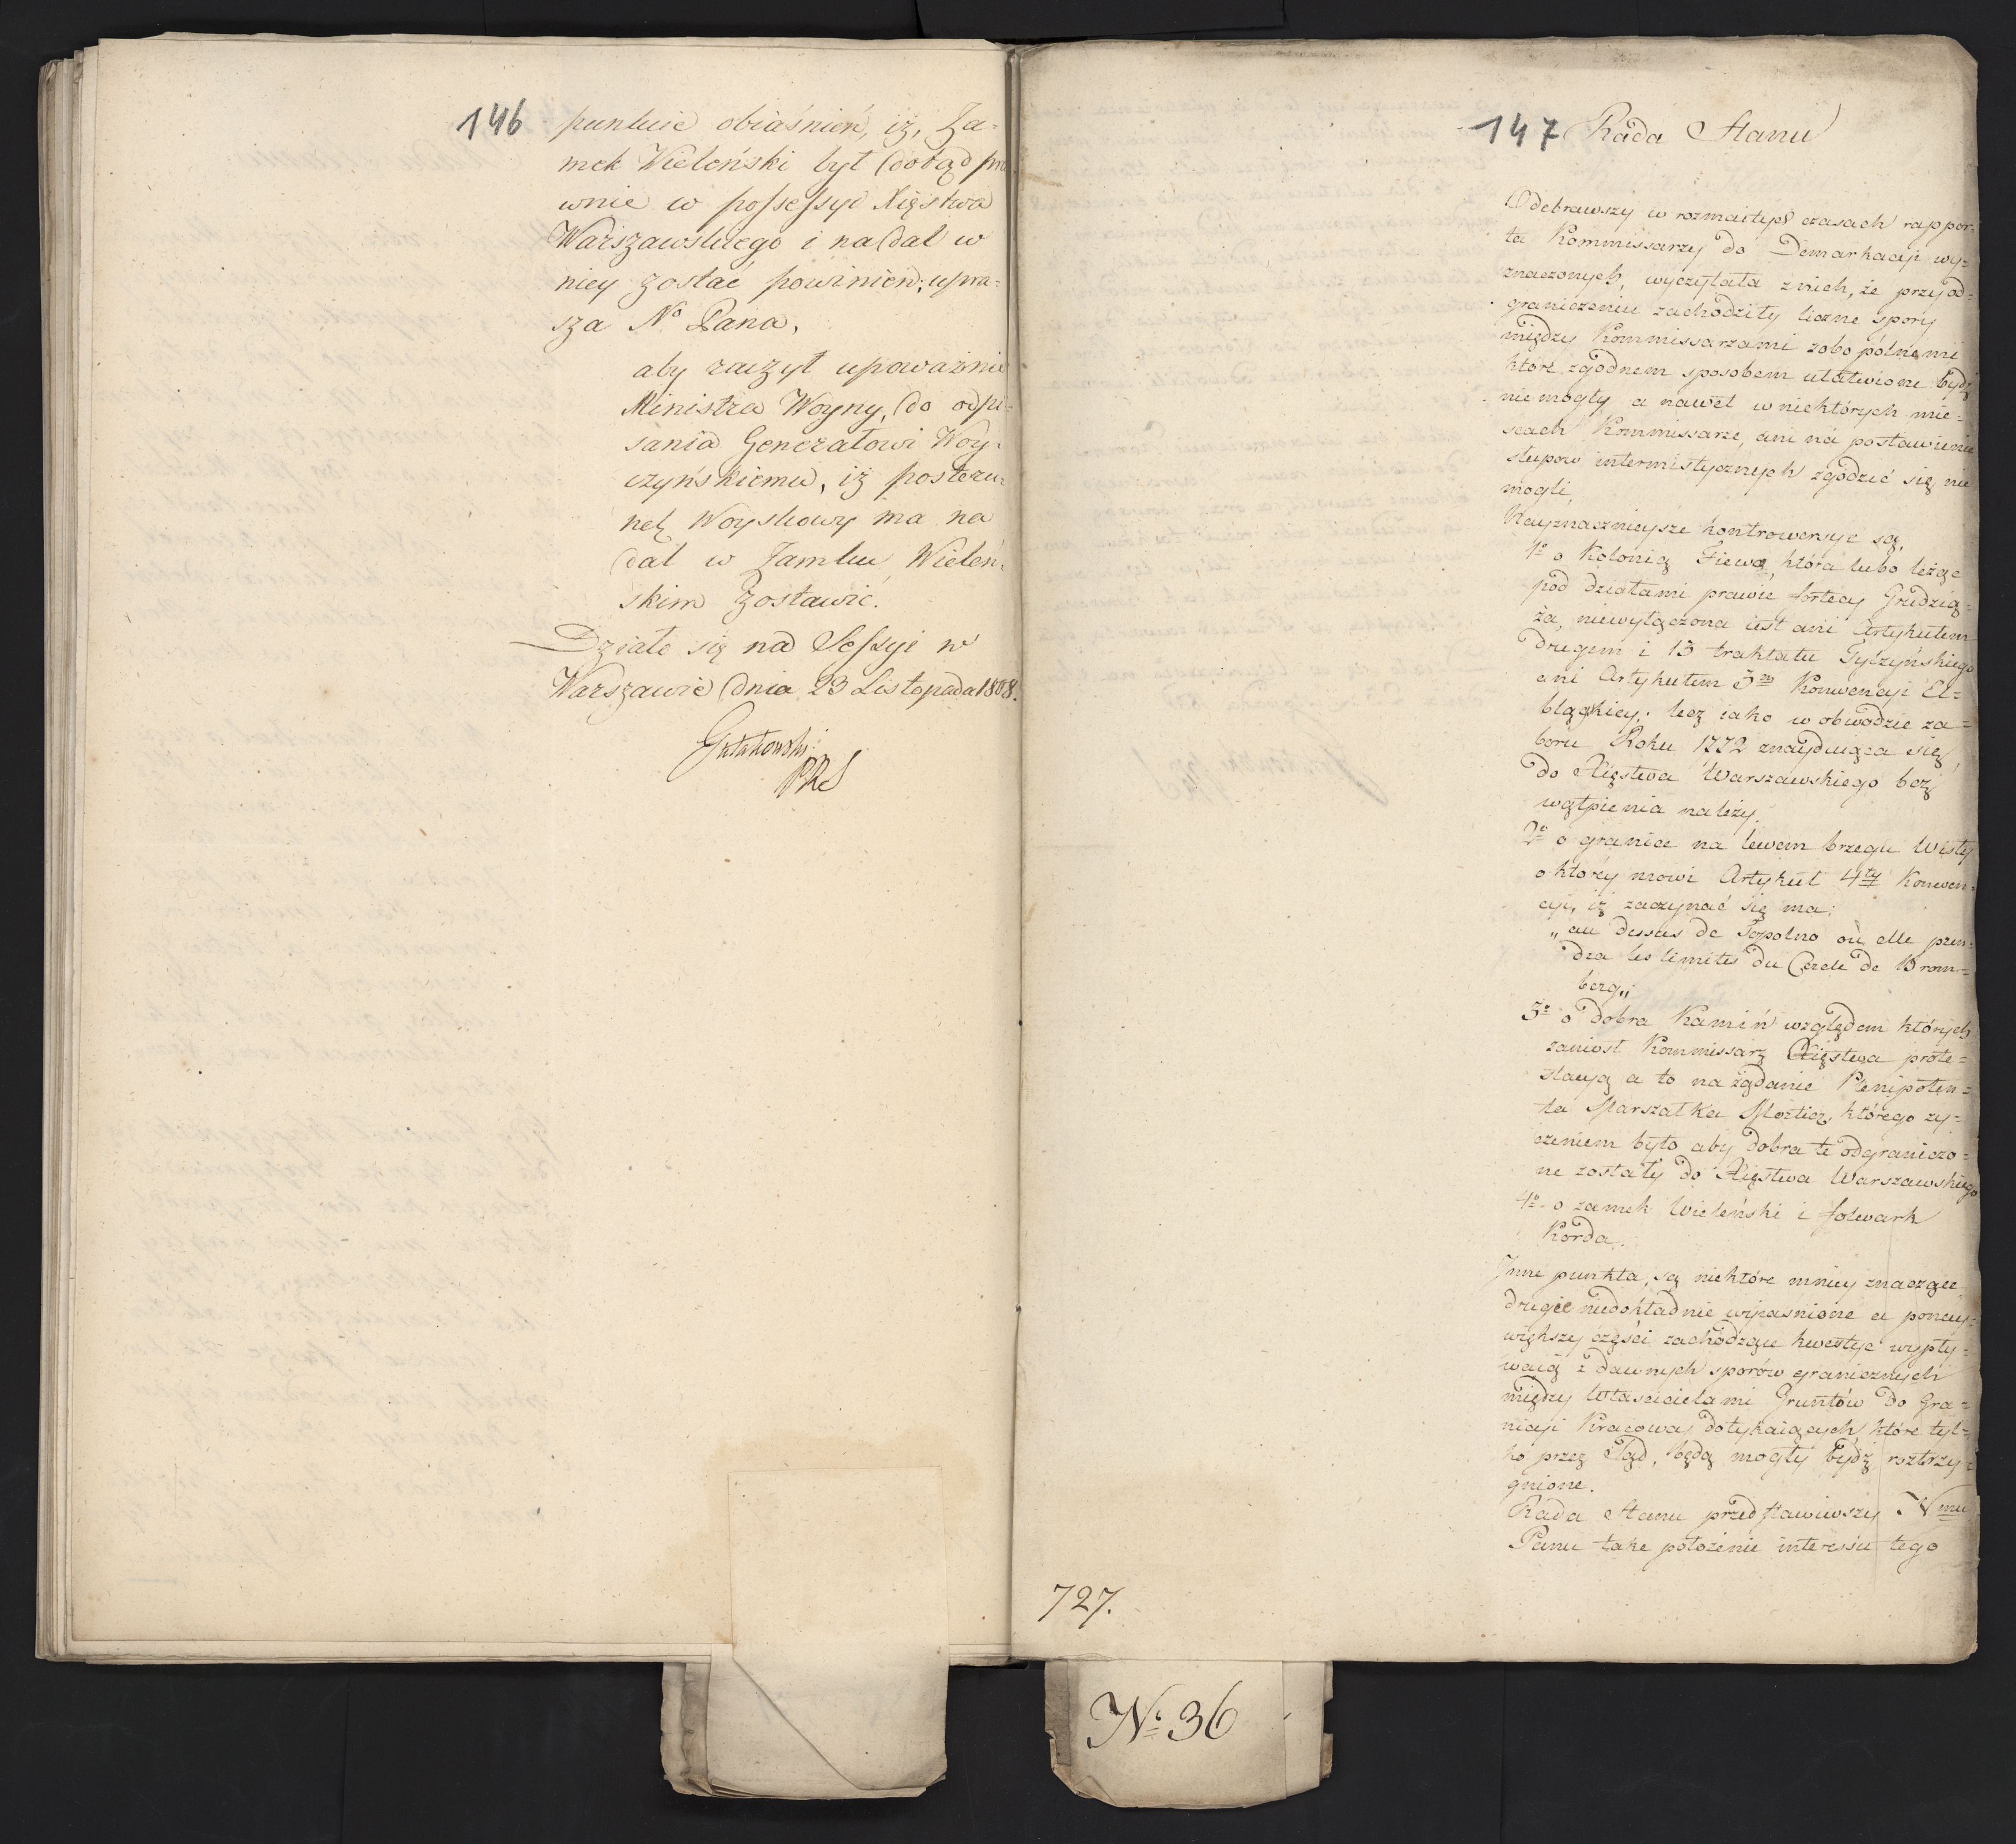 146
punkcie obiaśnień, iż, Za-
mek Wieleński był dotąd pra
wnie w possessyi Xięstwa
Warszawskiego i nadal w
niey zostać powinien; upra-
sza No Pana,
aby raczył upoważnić
Ministra Woyny, do odpi-
sania Generałowi Woy-
czyńskiemu, iż posteru-
nek Woyskowy ma na
dal w Zamku Wieleń-
skim zostawić.
Działo się na Sessyi w
Warszawie dnia 23 Listopada 1808.
Gutakowski
PRS
147 Rada Stanu
Odebrawszy w rozmaitych czasach rappor-
ta Kommissarzy do Demarkacyi wy-
znaczonych, wyczytała z nich, że przy od-
graniczeniu zachodziły liczne spory
między Kommissarzami zobopólnemi
które zgodnem sposobem ułatwione bydź
niemogły a nawet w niektórych mie-
scach Kommissarze, ani na postawienie
słupow intermistycznych zgodzić się nie
mogli.
Nayznacznieysze kontrowersye są,
1o o Kolonią Fiewo, która lubo leżąc
pod działami prawie fortecy Grudzią-
ża, niewyłączona iest ani Artykułem
drugim i 13 traktatu Tylżyńskiego
ani Artykułem 3m Konwencyi El-
bląskiey; lecz iako w obwodzie za-
boru Roku 1772 znayduiąca się
do Xięstwa Warszawskiego bez
wątpienia należy.
2o o granice na lewem brzegu Wisły
o który mowi Artykuł 4ty Konwen-
cyi, iż zaczynać się ma:
„au dessus de Topolno où elle pren-
dra les limites du Cercle de Brom-
berg„
3o o dobra Kamiń względem których
zaniosł Kommissarz Xięstwa prote-
stacyą a to na żądanie Plenipoten-
ta Marszałka Mortier, którego ży-
czeniem było aby dobra te odgraniczo-
ne zostały do Xięstwa Warszawskiego
4o o zamek Wieleński i folwark
Korda.
Inne punkta, są niektóre mniey znaczące
drugie niedokładnie wyiasnione a poney-
większy części zachodzące kwestye wypły-
waią z dawnych sporów granicznych
między Właścicielami Gruntów do Gra-
nicyi Kraiowey dotykaiących, które tyl-
ko przez Sąd, będą mogły bydź roztrzy-
gnione.
Rada Stanu przedstawiwszy Nmu
Panu take położenie interessu tego
727.
No 36